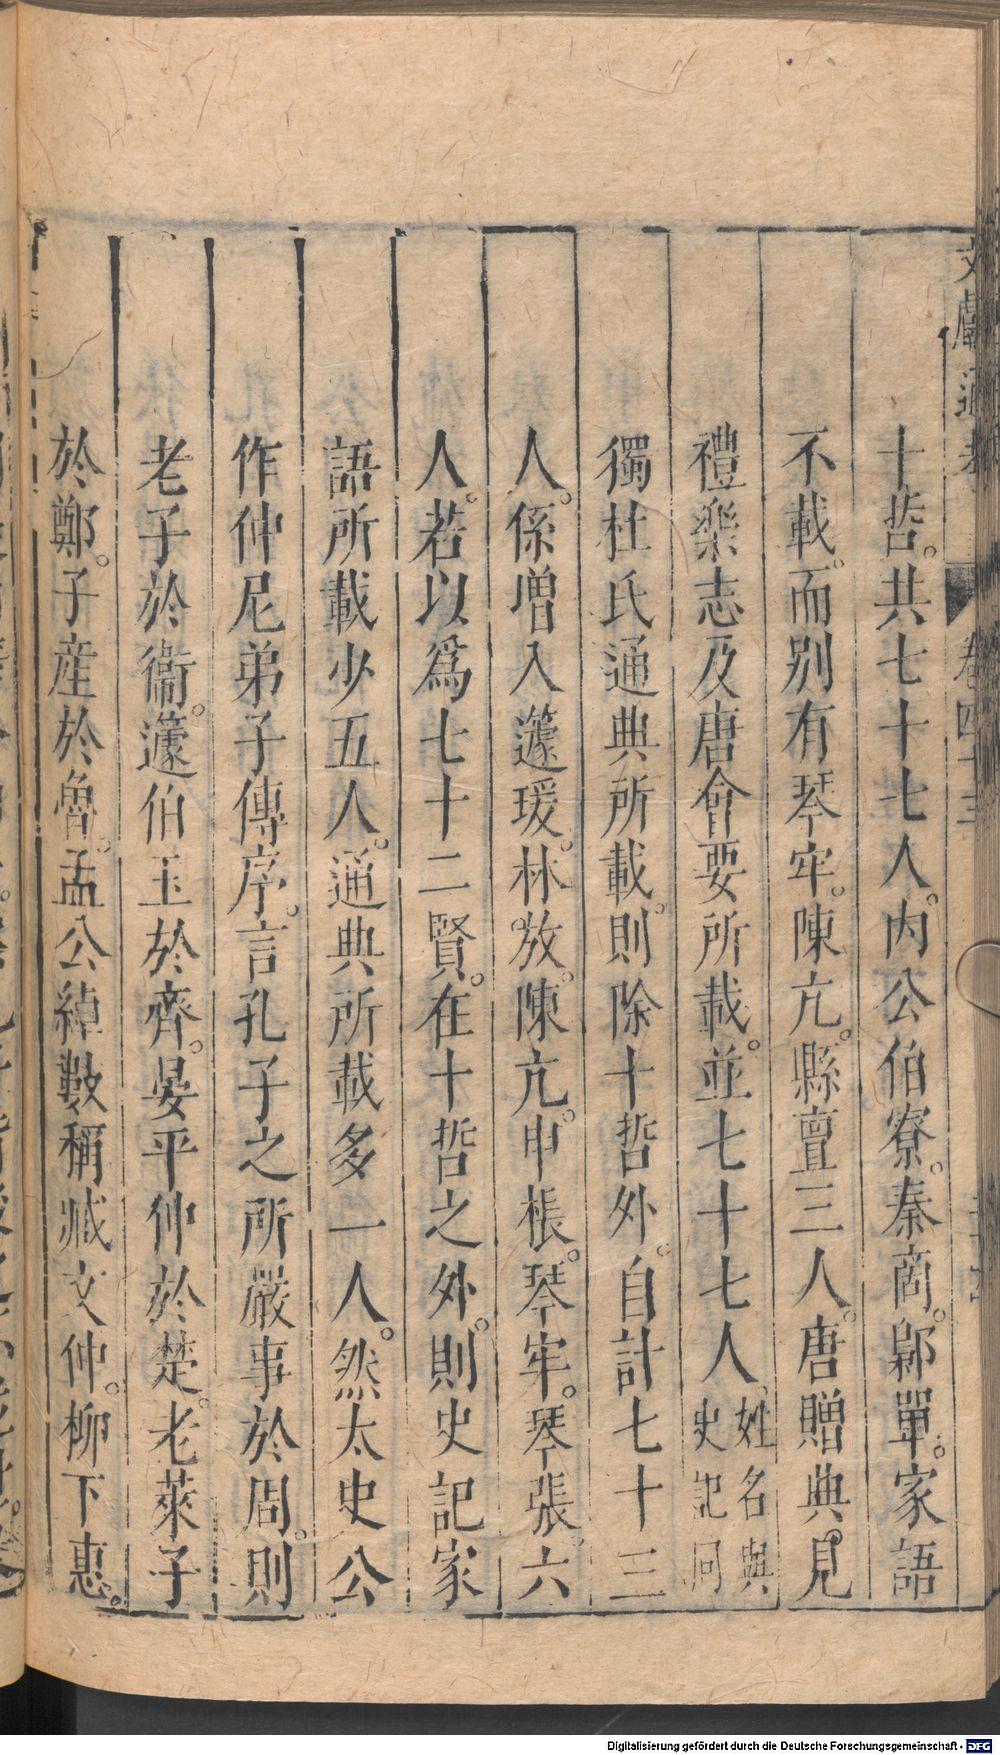 十哲。共七十七人。内公伯寮。秦商。鄡單。家語
不載。而别有琴牢。陳亢。縣亶三人。唐贈典。見
禮樂志及唐會要所載。並七十七人、姓名與史記同
獨杜氏通典所載。則除十哲外。自計七十三
人。係增入蘧瑗。林放。陳亢。申棖。琴牢。琴張。六
人。若以爲七十二賢。在十哲之外。則史記家
語所載少五人。通典所載多一人。然太史公
作仲尼弟子傳序。言孔子之所嚴事於周。則
老子於衞。蘧伯玉於齊。晏平仲於楚。老萊子
於鄭。子産於魯。孟公綽數稱臧文仲。柳下惠。
Digitalisierung gefördert durch die Deutsche Forschungsgemeinschaft - DFG